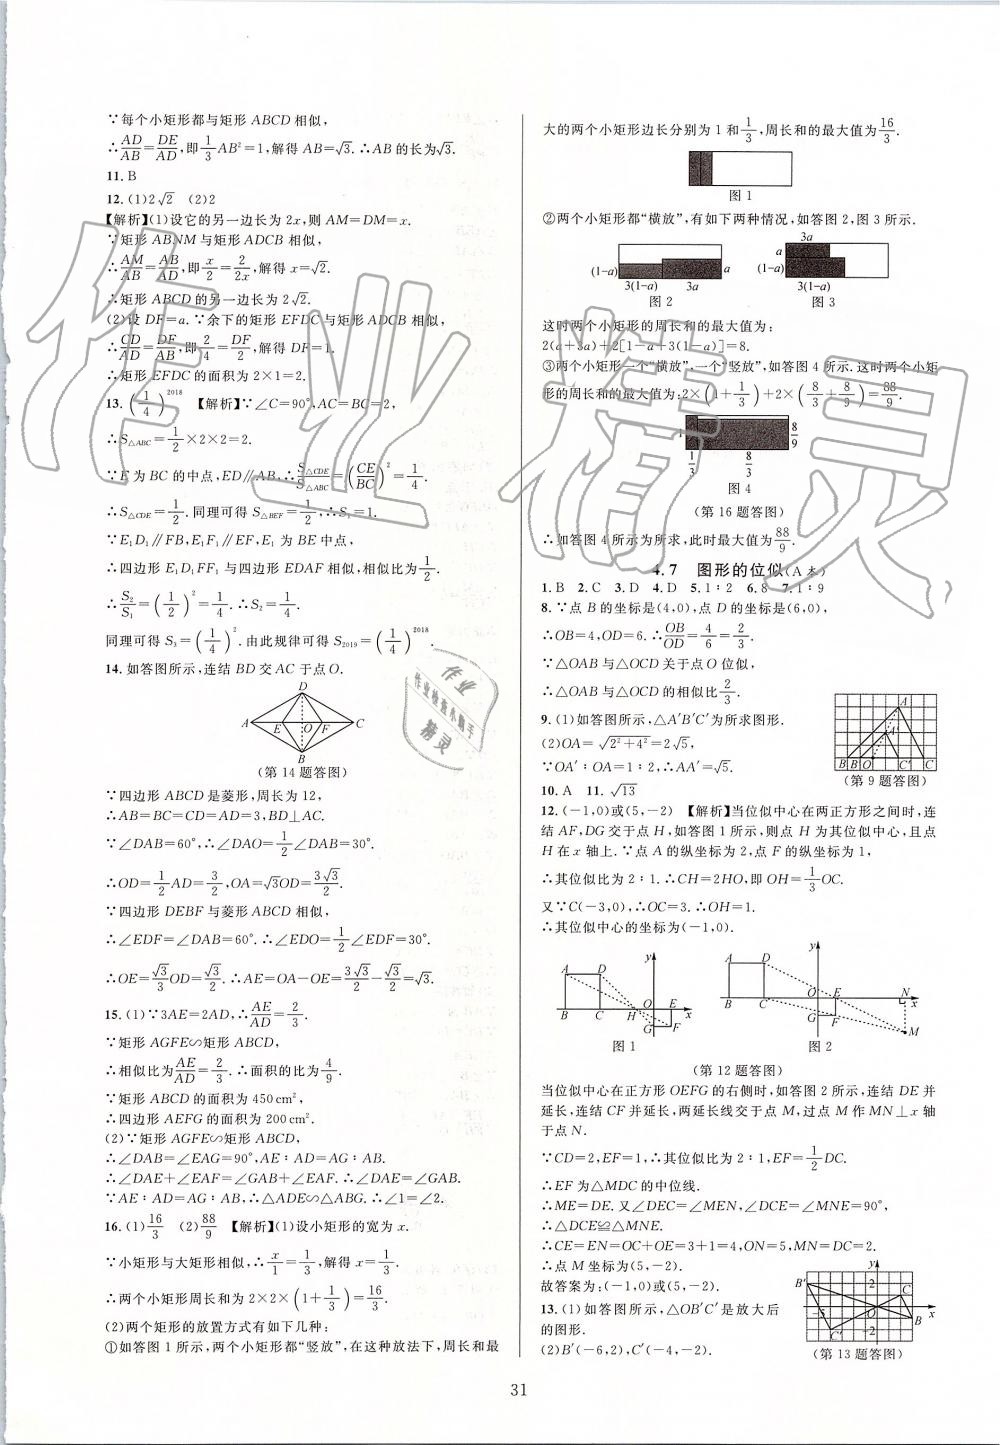 ∵每个小矩形都与矩形 ABCD 相似,
∴AD/AB=DE/AD,即1/3AB²=1,解得 AB=√3.∴AB 的长为√3.
11.B
12.(1)2√2 (2)2
【解析】(1)设它的另一边长为 2x,则 AM=DM=x.
∵矩形 ABNM 与矩形 ADCB 相似,
∴AM/AB=AB/AD,即x/2=2/2x,解得 x=√2.
∴矩形 ABCD 的另一边长为 2√2.
(2)设 DF=a.∵余下的矩形 EFDC 与矩形 ADCB 相似,
∴CD/AD=DF/AB,即2/4=DF/2,解得 DF=1.
∴矩形 EFDC 的面积为 2×1=2.
13.(1/4)²⁰¹⁸ 【解析】∵∠C=90°,AC=BC=2,
∴S△ABC=1/2×2×2=2.
∵E 为 BC 的中点,ED∥AB,∴S△CDE/S△ABC=(CE/BC)²=1/4.
∴S△CDE=1/2.同理可得 S△BEF=1/2,∴S₁=1.
∵E₁D₁∥FB,E₁F₁∥EF,E₁ 为 BE 中点,
∴四边形 E₁D₁FF₁ 与四边形 EDAF 相似,相似比为1/2.
∴S₂/S₁=(1/2)²=1/4.∴S₂=1/4.
同理可得 S₃=(1/4)².由此规律可得 S₂₀₁₉=(1/4)²⁰¹⁸.
14.如答图所示,连结 BD 交 AC 于点 O.
D
A E O F C
B
(第 14 题答图)
∵四边形 ABCD 是菱形,周长为 12,
∴AB=BC=CD=AD=3,BD⊥AC.
∵∠DAB=60°,∴∠DAO=1/2∠DAB=30°.
∴OD=1/2AD=3/2,OA=√3OD=3√3/2.
∵四边形 DEBF 与菱形 ABCD 相似,
∴∠EDF=∠DAB=60°.∴∠EDO=1/2∠EDF=30°.
∴OE=√3/3OD=√3/2.∴AE=OA-OE=3√3/2-√3/2=√3.
15.(1)∵3AE=2AD,∴AE/AD=2/3.
∵矩形 AGFE∽矩形 ABCD,
∴相似比为AE/AD=2/3.∴面积的比为4/9.
∵矩形 ABCD 的面积为 450 cm²,
∴四边形 AEFG 的面积为 200 cm².
(2)∵矩形 AGFE∽矩形 ABCD,
∴∠DAB=∠EAG=90°,AE∶AD=AG∶AB.
∴∠DAE+∠EAF=∠GAB+∠EAF.∴∠DAE=∠GAB.
∵AE∶AD=AG∶AB,∴△ADE∽△ABG.∴∠1=∠2.
16.(1)16/3 (2)88/9 【解析】(1)设小矩形的宽为 x.
∵小矩形与大矩形相似,∴x/1=1/3,解得 x=1/3.
∴两个小矩形周长和为 2×2×(1+1/3)=16/3.
(2)两个矩形的放置方式有如下几种:
①如答图 1 所示,两个小矩形都“竖放”,在这种放法下,周长和最
大的两个小矩形边长分别为 1 和1/3,周长和的最大值为16/3.
图 1
②两个小矩形都“横放”,有如下两种情况,如答图 2,图 3 所示.
(1-a) a
3(1-a) 3a
图 2
3a
a
(1-a)
3(1-a)
图 3
这时两个小矩形的周长和的最大值为:
2(a+3a)+2[1-a+3(1-a)]=8.
③两个小矩形一个“横放”,一个“竖放”,如答图 4 所示.这时两个小矩
形的周长和的最大值为:2×(1+1/3)+2×(8/3+8/9)=88/9.
1 8/9
1/3 8/3
图 4
(第 16 题答图)
∴如答图 4 所示为所求,此时最大值为88/9.
4.7 图形的位似(A 本)
1.B 2.C 3.D 4.D 5.1∶2 6.8 7.1∶9
8.∵点 B 的坐标是(4,0),点 D 的坐标是(6,0),
∴OB=4,OD=6.∴OB/OD=4/6=2/3.
∵△OAB 与△OCD 关于点 O 位似,
∴△OAB 与△OCD 的相似比为2/3.
9.(1)如答图所示,△A′B′C′为所求图形.
(2)OA=√2²+4²=2√5,
∵OA′∶OA=1∶2,∴AA′=√5.
A
A′
B B′ O C′ C
(第 9 题答图)
10.A 11.√13
12.(-1,0)或(5,-2) 【解析】当位似中心在两正方形之间时,连
结 AF,DG 交于点 H,如答图 1 所示,则点 H 为其位似中心,且点
H 在 x 轴上.∵点 A 的纵坐标为 2,点 F 的纵坐标为 1,
∴其位似比为 2∶1.∴CH=2HO,即 OH=1/3OC.
又∵C(-3,0),∴OC=3.∴OH=1.
∴其位似中心的坐标为(-1,0).
y
A D
O E
B C H x
G F
图 1
y
A D
O E N
B C x
G F
M
图 2
(第 12 题答图)
当位似中心在正方形 OEFG 的右侧时,如答图 2 所示,连结 DE 并
延长,连结 CF 并延长,两延长线交于点 M,过点 M 作 MN⊥x 轴
于点 N.
∵CD=2,EF=1,∴其位似比为 2∶1,∴EF=1/2DC.
∴EF 为△MDC 的中位线.
∴ME=DE.又∠DEC=∠MEN,∠DCE=∠MNE=90°,
∴△DCE≌△MNE.
∴CE=EN=OC+OE=3+1=4,ON=5,MN=DC=2.
∴点 M 坐标为(5,-2).
故答案为:(-1,0)或(5,-2)
13.(1)如答图所示,△OB′C′是放大后
的图形.
(2)B′(-6,2),C′(-4,-2)
y
B′ 2 C
-5 O x
B
C′ -2
(第 13 题答图)
31
作业精灵
作业
作业检查小帮手
精灵